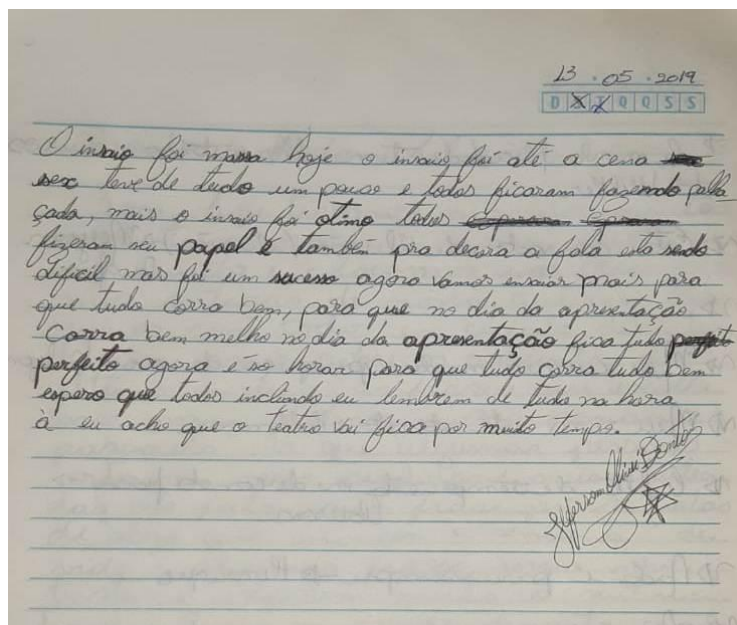 13 . 05 . 2019
D S T Q Q S S
O insaio foi massa hoje o insaio foi até a cena
sex teve de tudo um pouco e todos ficaram fazendo palha
çada, mais o insaio foi otimo todos
fizeram seu papel e também pra decora a fala esta sendo
dificil mas foi um sucesso agora vamos ensaiar mais para
que tudo corra bem, para que no dia da apresentação
corra bem melho no dia da apresentação fica tudo perfeit
perfeito agora é so horar para que tudo corra tudo bem
espero que todos incluindo eu lembrem de tudo na hora
à eu acho que o teatro vai fica por muito tempo.
Jefferson